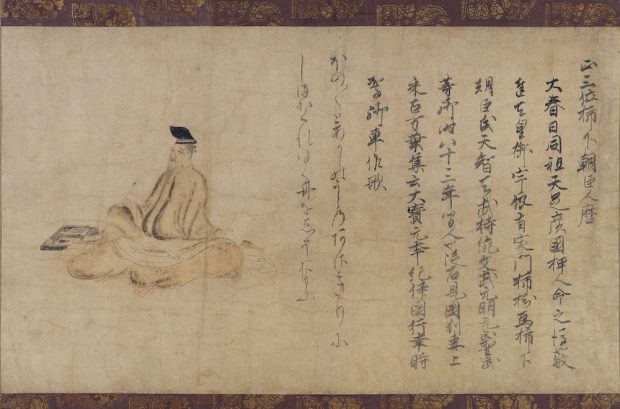 正三位柿下朝臣人麿
大春日同祖天足彦國押人命之後敏
達天皇御宇依有家門柿樹為柿下
朝臣氏天智天武持統文武元明元正聖武
等御時八十三年間人也從石見國別妻上
来 万葉集云大寶元年紀伊國行幸時
駕御車作歌
ほの〱と明しのうらのあさきりに
しまかくれゆく舟をしそおもふ